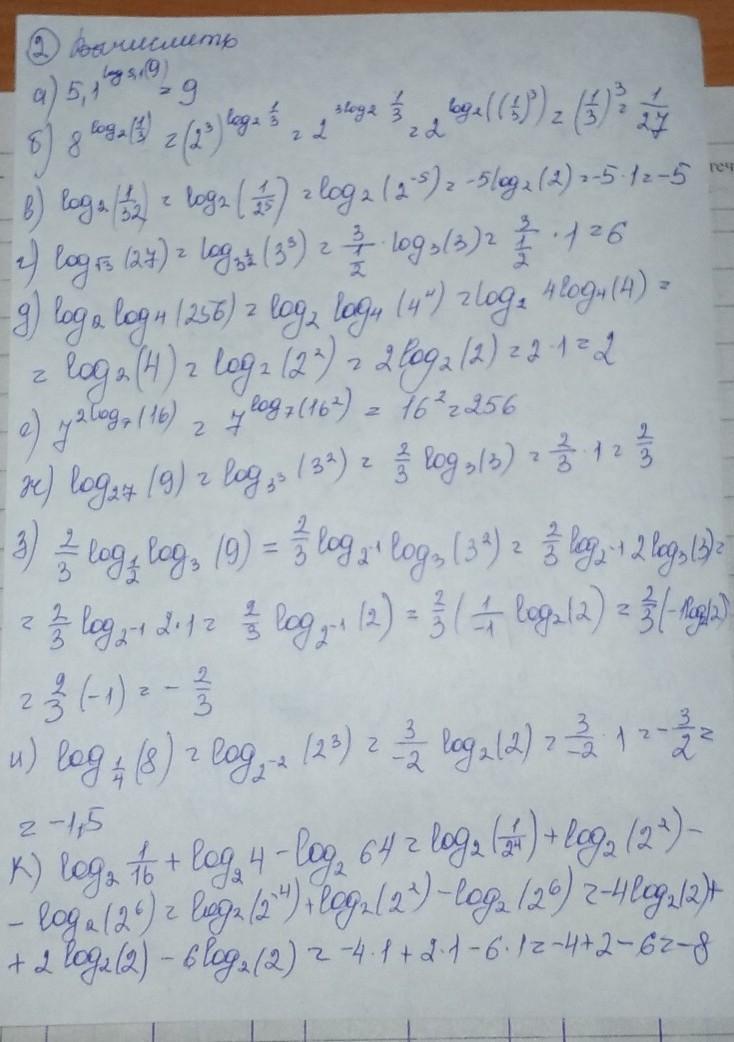 ② Вычислить
а) 5,1^{log_{5,1}(9)} = 9
б) 8^{log_2(1/3)} = (2^3)^{log_2 1/3} = 2^{3log_2 1/3} = 2^{log_2((1/3)^3)} = (1/3)^3 = 1/27
в) log_2(1/32) = log_2(1/2^5) = log_2(2^{-5}) = -5log_2(2) = -5·1 = -5
г) log_{√3}(27) = log_{3^{1/2}}(3^3) = 3/(1/2) · log_3(3) = 3/(1/2) · 1 = 6
д) log_2 log_4(256) = log_2 log_4(4^4) = log_2 4log_4(4) =
= log_2(4) = log_2(2^2) = 2log_2(2) = 2·1 = 2
е) 7^{2log_7(16)} = 7^{log_7(16^2)} = 16^2 = 256
ж) log_{27}(9) = log_{3^3}(3^2) = 2/3 log_3(3) = 2/3 · 1 = 2/3
з) 2/3 log_{1/2} log_3(9) = 2/3 log_{2^{-1}} log_3(3^2) = 2/3 log_{2^{-1}} 2log_3(3) =
= 2/3 log_{2^{-1}} 2·1 = 2/3 log_{2^{-1}}(2) = 2/3 (1/-1 log_2(2) = 2/3 (-1log_2(2)
= 2/3 (-1) = - 2/3
и) log_{1/4}(8) = log_{2^{-2}}(2^3) = 3/-2 log_2(2) = 3/-2 · 1 = -3/2 =
= -1,5
к) log_2 1/16 + log_2 4 - log_2 64 = log_2(1/2^4) + log_2(2^2) -
- log_2(2^6) = log_2(2^{-4}) + log_2(2^2) - log_2(2^6) = -4log_2(2) +
+ 2log_2(2) - 6log_2(2) = -4·1 + 2·1 - 6·1 = -4 + 2 - 6 = -8